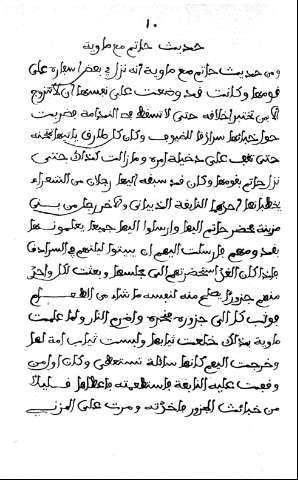 ١٠
حديث حاتم مع ماوية
ومن حديث حاتم مع ماوية أنه نزل في بعض أسفاره على
قومها وكانت قد وضعت على نفسها أن لا تتزوج
إلا من تختبر أخلاقه حتى لا تسقط في الندامة فضربت
حول خبائها سرادقا للضيوف وكان كل طارق ياتيها تمتحنه
حتى تقف على دخيلة أمره وما زالت كذلك حتى
نزل حاتم بقومها وكان قد سبقه اليها رجلان من الشعراء
يخطبانها أحدهما النابغة الذبياني والآخر رجل من بني
مزينة فحضر حاتم اليها وارسلوا اليها جميعا يعلمونها
بقدومهم فارسلت اليهم ان يبيتوا ليلتهم في السرادق
فاذا كان الغد استحضرتهم الى مجلسها وبعثت لكل واحد
منهم جزورا يصلح منه لنفسه ما شاء من الطعام
فوثب كل الى جزوره فنحره واضرم النار ولما علمت
ماوية بذلك خلعت ثيابها ولبست ثياب أمة لها
وخرجت اليهم كأنها سائلة تستعطي وكان أول من
وقفت عليه النابغة فاستطعمته فاعطاها قليلا
من خبائث الجزور فاخذته ومرت على المزني